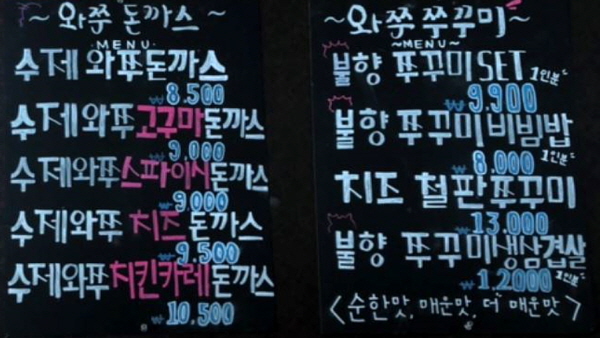 ~와쭈 돈까스~
MENU
수제 와쭈돈까스
₩8,500
수제와쭈고구마돈까스
₩9,000
수제와쭈스파이시돈까스
₩9,000
수제와쭈 치즈 돈까스
₩9,500
수제와쭈치킨카레돈까스
₩10,500
~와쭈 쭈꾸미~
~MENU~
불향 쭈꾸미SET 1인분
₩9,900
불향 쭈꾸미비빔밥
₩8,000 1인분
치즈 철판쭈꾸미
₩13,000
불향 쭈꾸미생삼겹살
₩1,2000 1인분
<순한맛, 매운맛, 더 매운맛>